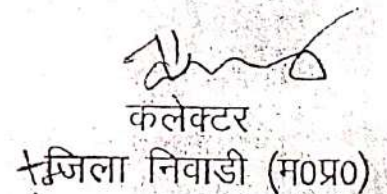 कलेक्टर
जिला निवाडी (म0प्र0)